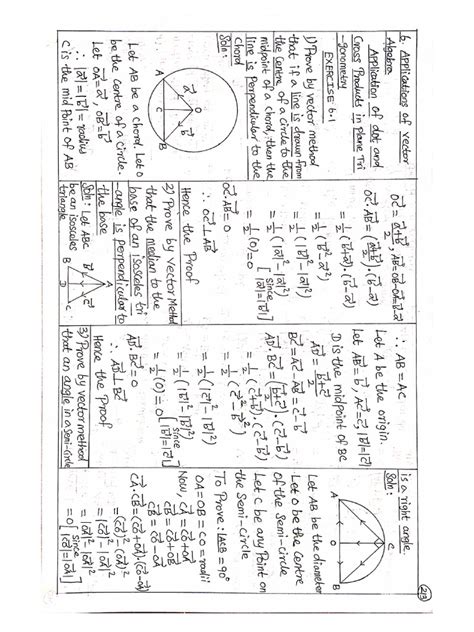 213
6. Applications of Vector
Algebra
Application of dot and
Cross Products in Plane Tri
-gonometry
EXERCISE 6.1
1) Prove by vector method
that if a line is drawn from
the centre of a circle to the
midpoint of a chord, then the
line is perpendicular to the
chord
Soln:
O
a⃗ b⃗
A C B
Let AB be a chord. Let O
be the Centre of a circle.
Let O⃗A = a⃗, O⃗B = b⃗
∴ |a⃗| = |b⃗| = radius
C is the mid Point of AB
O⃗C = (a⃗+b⃗)/2, A⃗B = O⃗B-O⃗A = b⃗-a⃗
O⃗C.A⃗B = ((a⃗+b⃗)/2).(b⃗-a⃗)
= 1/2 (b⃗+a⃗).(b⃗-a⃗)
= 1/2 (b⃗²-a⃗²)
= 1/2 (|b⃗|²-|a⃗|²)
= 1/2 (0) [since |a⃗|=|b⃗|]
O⃗C.A⃗B = 0
∴ O⃗C ⊥ A⃗B
Hence the Proof
2) Prove by Vector Method
that the median to the
base of an isosceles tri
-angle is perpendicular to
the base
Soln: Let ABC
be an isosceles
triangle
A
b⃗ c⃗
B D C
∴ AB = AC
Let A be the origin.
Let A⃗B = b⃗, A⃗C = c⃗, |b⃗|=|c⃗|
D is the midpoint of BC
A⃗D = (b⃗+c⃗)/2
B⃗C = A⃗C-A⃗B = c⃗-b⃗
A⃗D.B⃗C = ((b⃗+c⃗)/2).(c⃗-b⃗)
= 1/2 (c⃗+b⃗).(c⃗-b⃗)
= 1/2 (c⃗²-b⃗²)
= 1/2 (|c⃗|²-|b⃗|²)
= 1/2 (0) = 0 [since |b⃗|=|c⃗|]
A⃗D.B⃗C = 0
∴ A⃗D ⊥ B⃗C
Hence the Proof
3) Prove by vector method
that an angle in a semi-Circle
is a right angle.
Soln:
C
A O B
Let AB be the diameter
Let O be the Centre
of the Semi-Circle
Let C be any Point on
the Semi-Circle
OA = OB = CO = radii
To Prove: ∠ACB = 90°
Now, C⃗A = C⃗O+O⃗A
C⃗B = C⃗O+O⃗B
C⃗B = C⃗O-O⃗A
C⃗A.C⃗B = (C⃗O+O⃗A).(C⃗O-O⃗A)
= (C⃗O)²-(O⃗A)²
= |C⃗O|²-|O⃗A|²
= |O⃗A|²-|O⃗A|²
= 0 [since |C⃗O|=|O⃗A|]